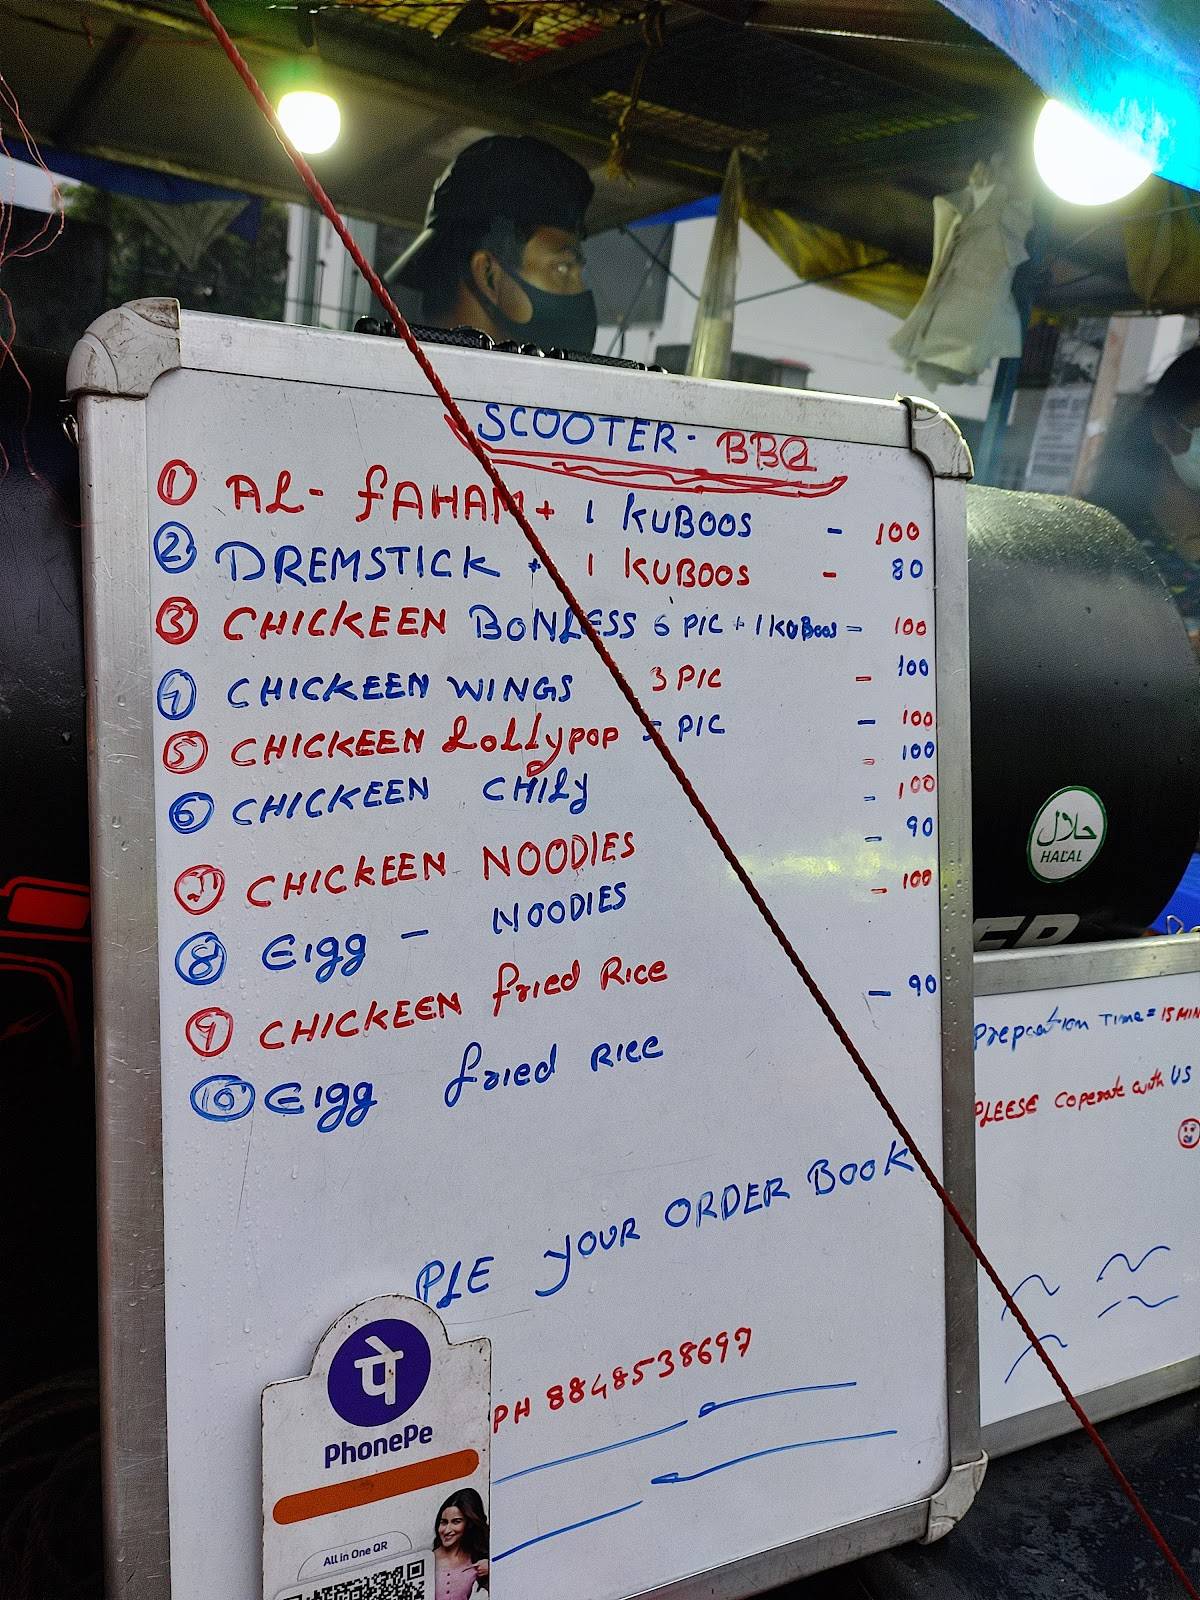 SCOOTER- BBQ
1 AL- fAHAM + 1 KUBOOS - 100
2 DREMSTICK + 1 KUBOOS - 80
3 CHICKEEN BONLESS 6 PIC + 1 KUBOOS - 100
4 CHICKEEN WINGS 3 PIC - 100
5 CHICKEEN LoLLypop 5 PIC - 100
6 CHICKEEN CHILy - 100
7 CHICKEEN NOODIES - 100
8 EIgg - NOODIES - 90
9 CHICKEEN fried RicE - 100
10 EIgg fried RICE - 90
PLE yOUR ORDER BOOK
PH 8848538697
पे
PhonePe
All in One QR
حلال
HALAL
ER
Prepaation Time = 15 MIN
PLEESE coperate with US